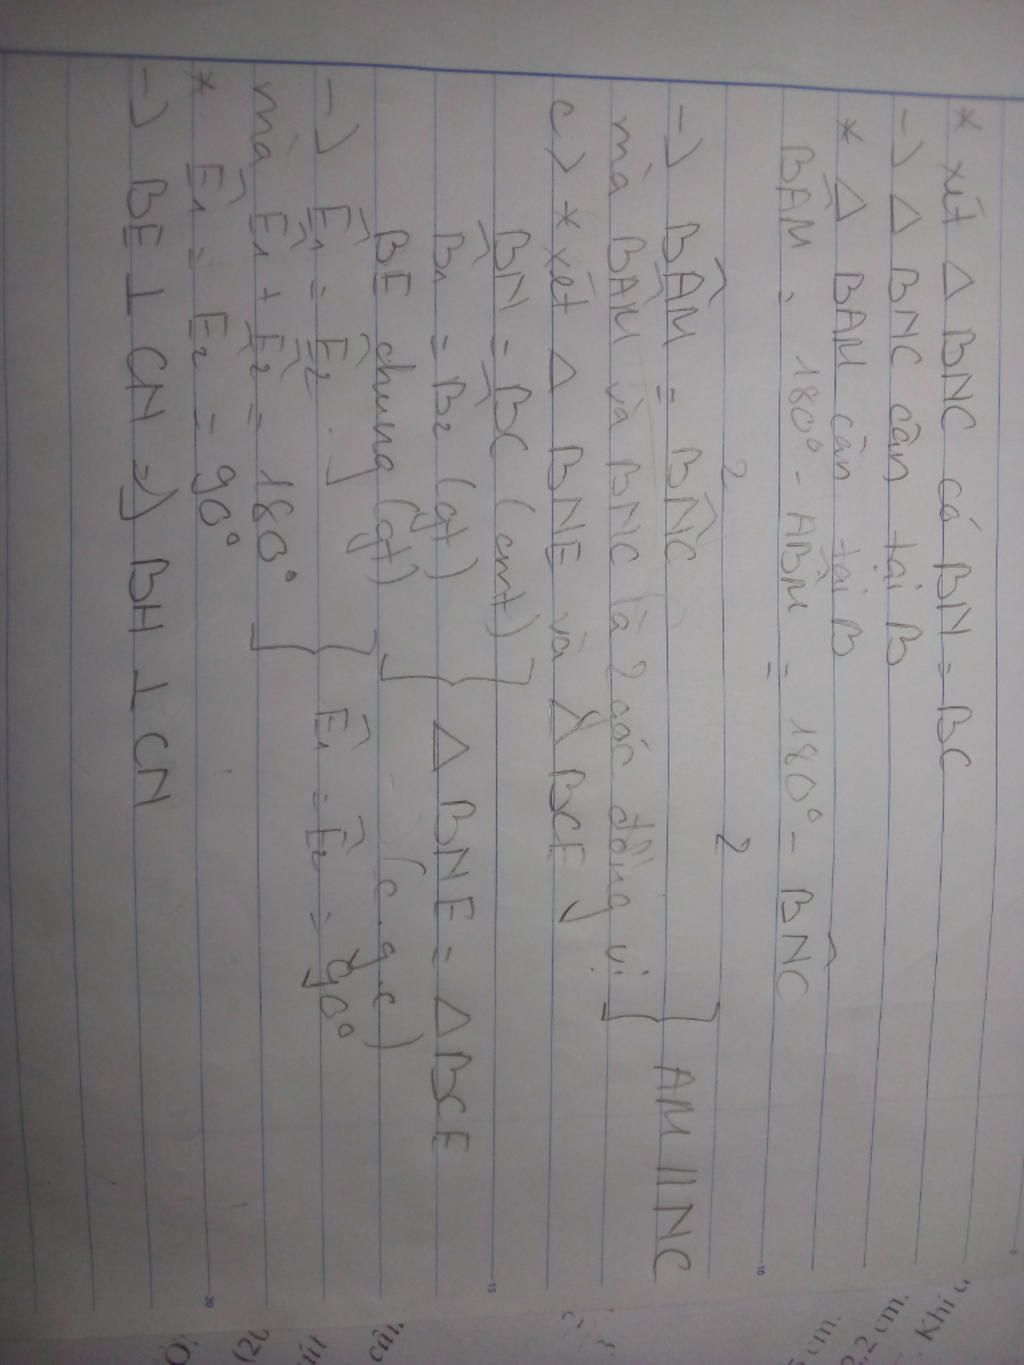 * xét Δ BNC có BN = BC
-) Δ BNC cân tại B
* Δ BAM cân tại B
BÂM = 180° - AB̂M = 180° - BN̂C
2 2
-) BÂM = BN̂C
mà BÂM và BN̂C là 2 góc đồng vị
AM // NC
c) * xét Δ BNE và Δ BCE
BN = BC (cmt)
B̂1 = B̂2 (gt)
BE chung (gt)
Δ BNE = Δ BCE
(c.g.c)
-) Ê1 = Ê2
mà Ê1 + Ê2 = 180°
Ê1 = Ê2 = 90°
* Ê1 = Ê2 = 90°
-) BE ⊥ CN => BH ⊥ CN
cm.
2,2 cm.
Khi
10
15
20